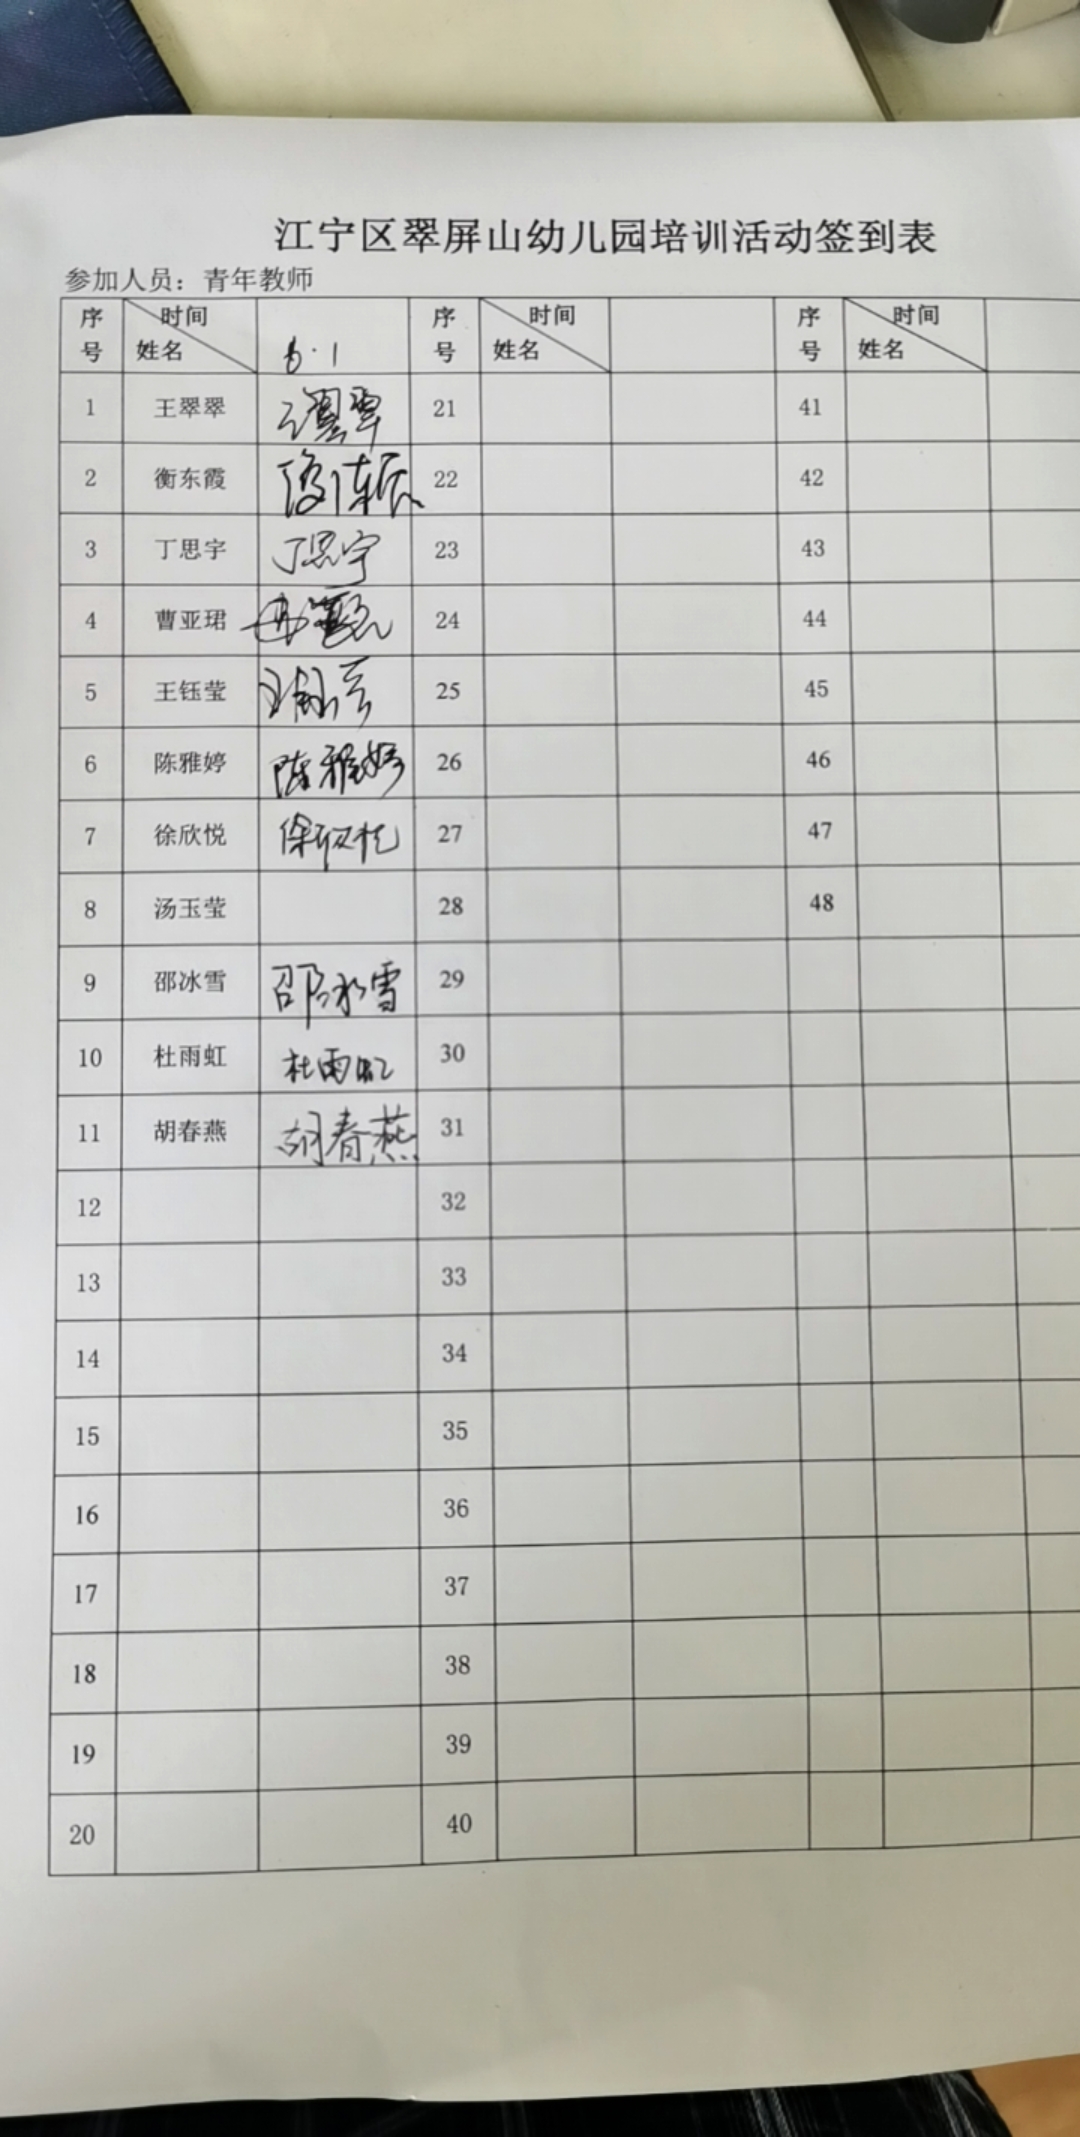 江宁区翠屏山幼儿园培训活动签到表
参加人员：青年教师
序号 时间 姓名 6.1 序号 时间 姓名 序号 时间 姓名
1 王翠翠 王翠翠 21 41
2 衡东霞 22 42
3 丁思宇 丁思宇 23 43
4 曹亚珺 24 44
5 王钰莹 25 45
6 陈雅婷 陈雅婷 26 46
7 徐欣悦 徐欣悦 27 47
8 汤玉莹 28 48
9 邵冰雪 邵冰雪 29
10 杜雨虹 杜雨虹 30
11 胡春燕 胡春燕 31
12 32
13 33
14 34
15 35
16 36
17 37
18 38
19 39
20 40